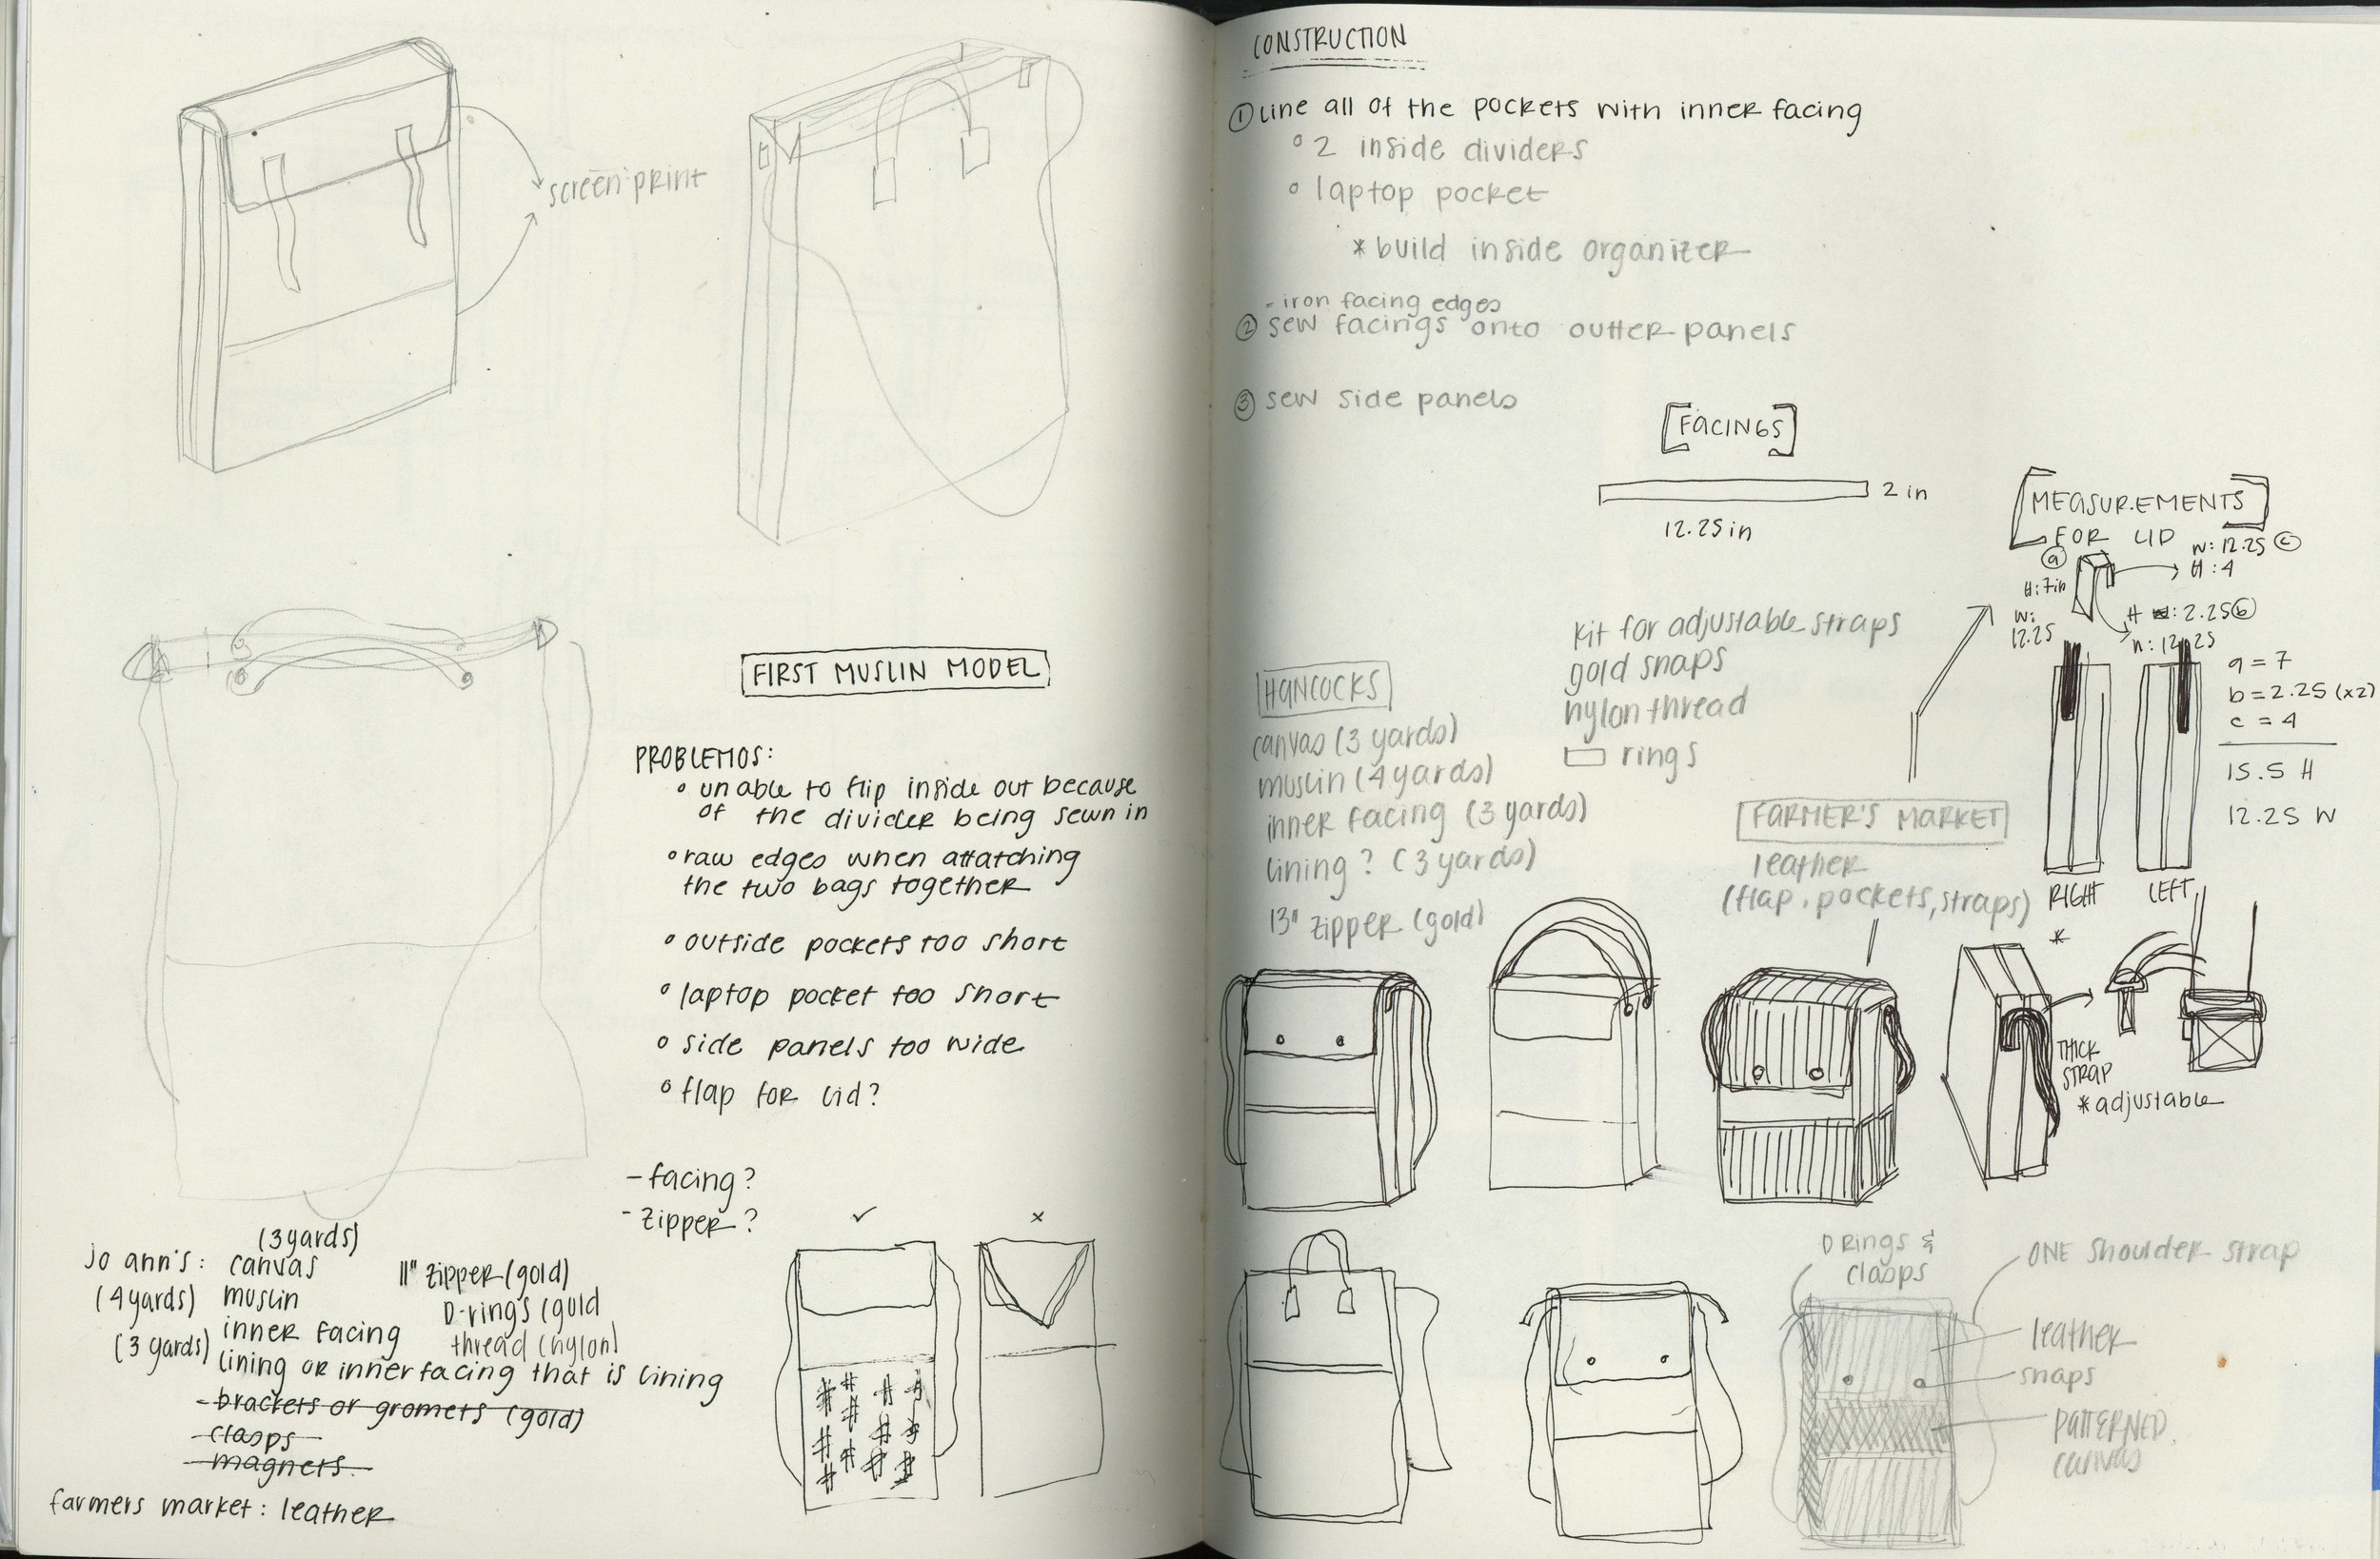 screen print
FIRST MUSLIN MODEL
PROBLEMOS:
° unable to flip inside out because
of the divider being sewn in
° raw edges when attatching
the two bags together
° outside pockets too short
° laptop pocket too short
° side panels too wide
° flap for lid?
- facing?
- zipper?
✓ x
(3 yards)
Jo ann's: canvas
(4 yards) muslin
(3 yards) inner facing
lining or inner facing that is lining
- brackets or gromets (gold)
- clasps
- magnets
11" zipper (gold)
D-rings (gold
thread (nylon)
farmers market: leather
CONSTRUCTION
① Line all of the pockets with inner facing
° 2 inside dividers
° laptop pocket
* build inside organizer
- iron facing edges
② sew facings onto outter panels
③ sew side panels
[FACINGS]
2 in
12.25 in
[MEASUREMENTS]
FOR LID
ⓐ
H: 7in
W:
12.25
W: 12.25 ⓒ
H: 4
H W: 2.25 ⓑ
12.25
a = 7
b = 2.25 (x2)
c = 4
15.5 H
12.25 W
RIGHT LEFT
*
HANCOCKS
canvas (3 yards)
muslin (4 yards)
inner facing (3 yards)
lining? (3 yards)
13" zipper (gold)
kit for adjustable straps
gold snaps
nylon thread
rings
FARMER'S MARKET
leather
(flap, pockets, straps)
THICK
STRAP
* adjustable
D rings &
clasps
ONE shoulder strap
leather
snaps
PATTERNED
canvas